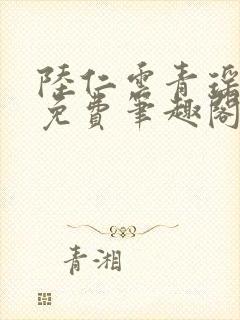 陸仁雲青瑶
免費筆趣閣
青湘